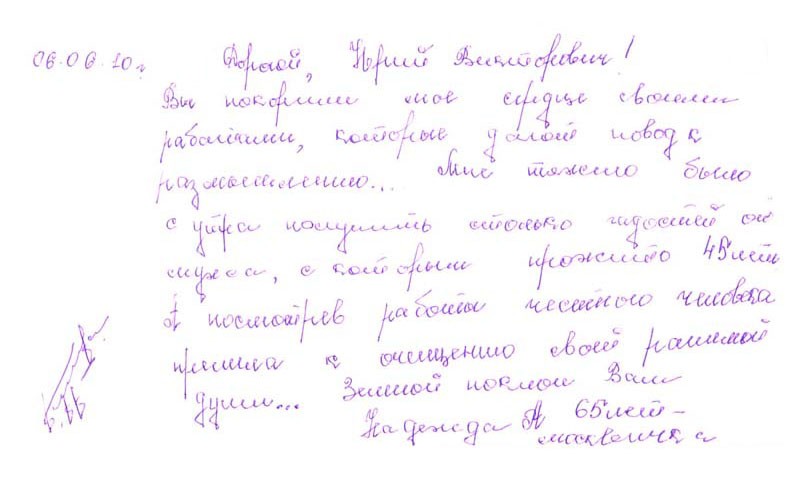 06.06.10г. Дорогой, Юрий Викторович!
Вы покорили мое сердце своими
работами, которые дают повод к
размышлению... Мне тяжело было
с утра получить столько гадостей от
мужа, с которым прожито 45 лет
А посмотрев работы честного человека
пришла к очищению своей ранимой
души... Земной поклон Вам
Надежда А 65 лет -
москвичка